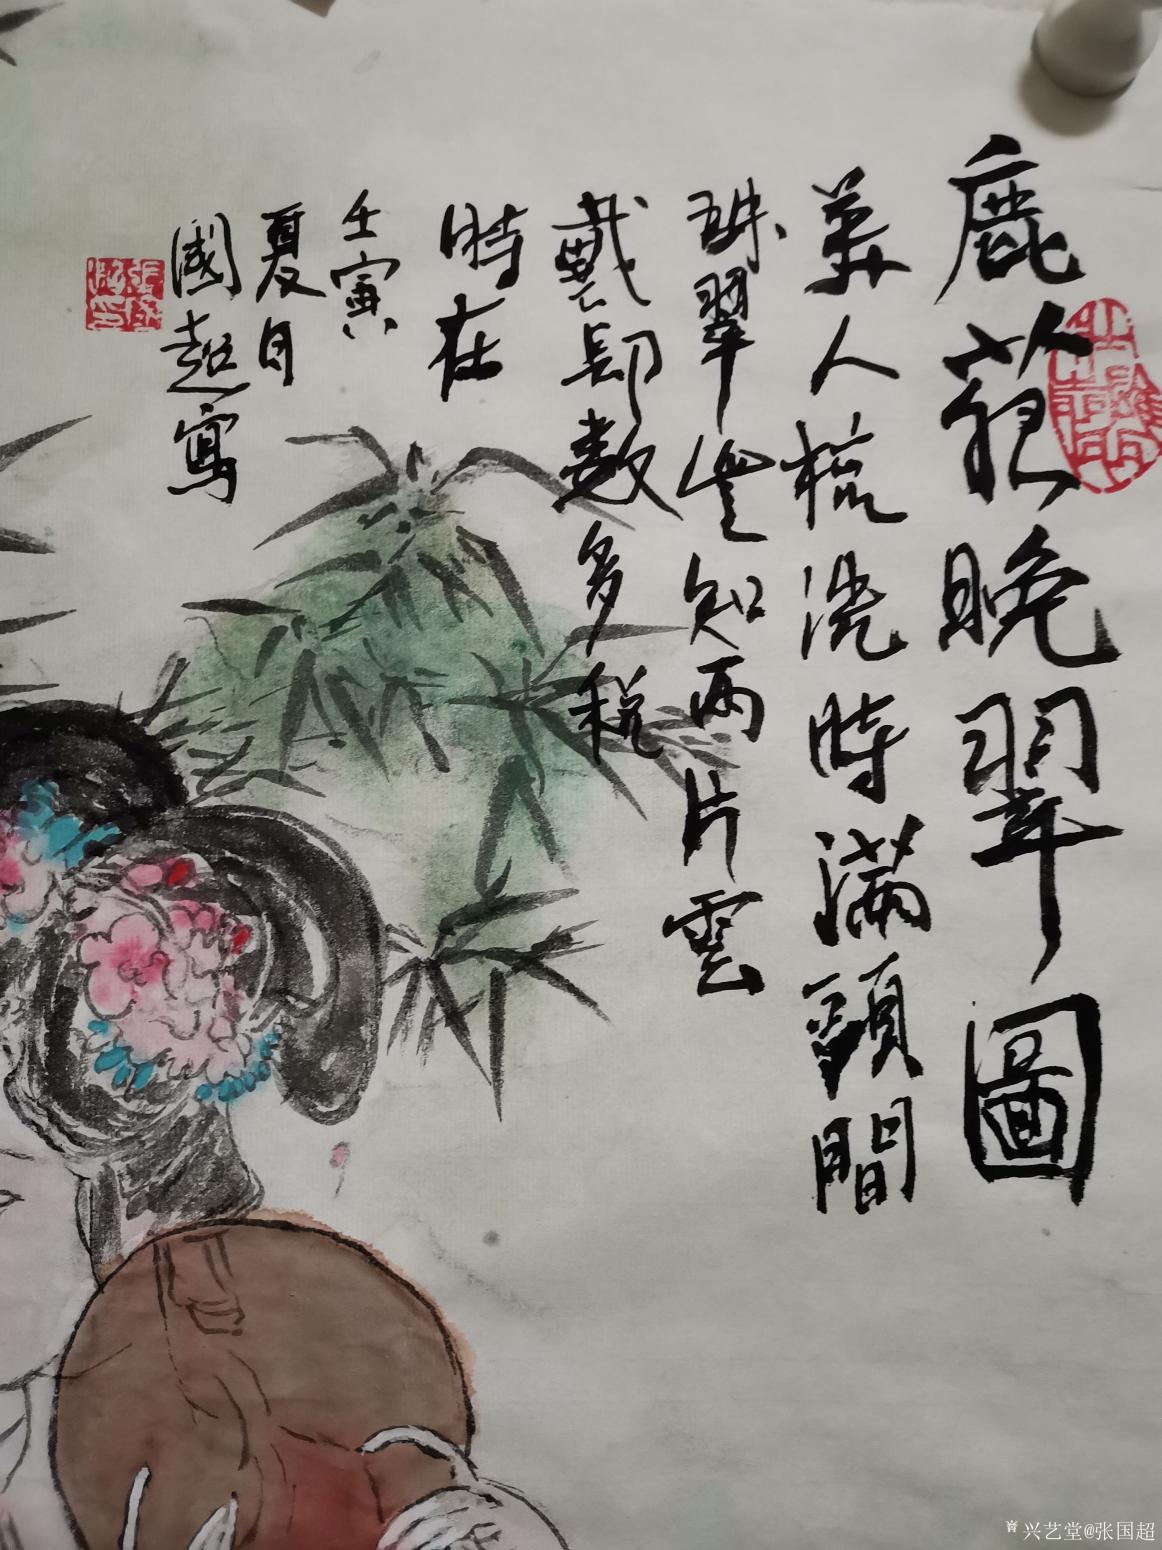 鹿苑晚翠圖
美人梳洗時滿頭間
珠翠豈知兩片雲
戴却數多税
時在
壬寅
夏日
國超寫
兴艺堂@张国超